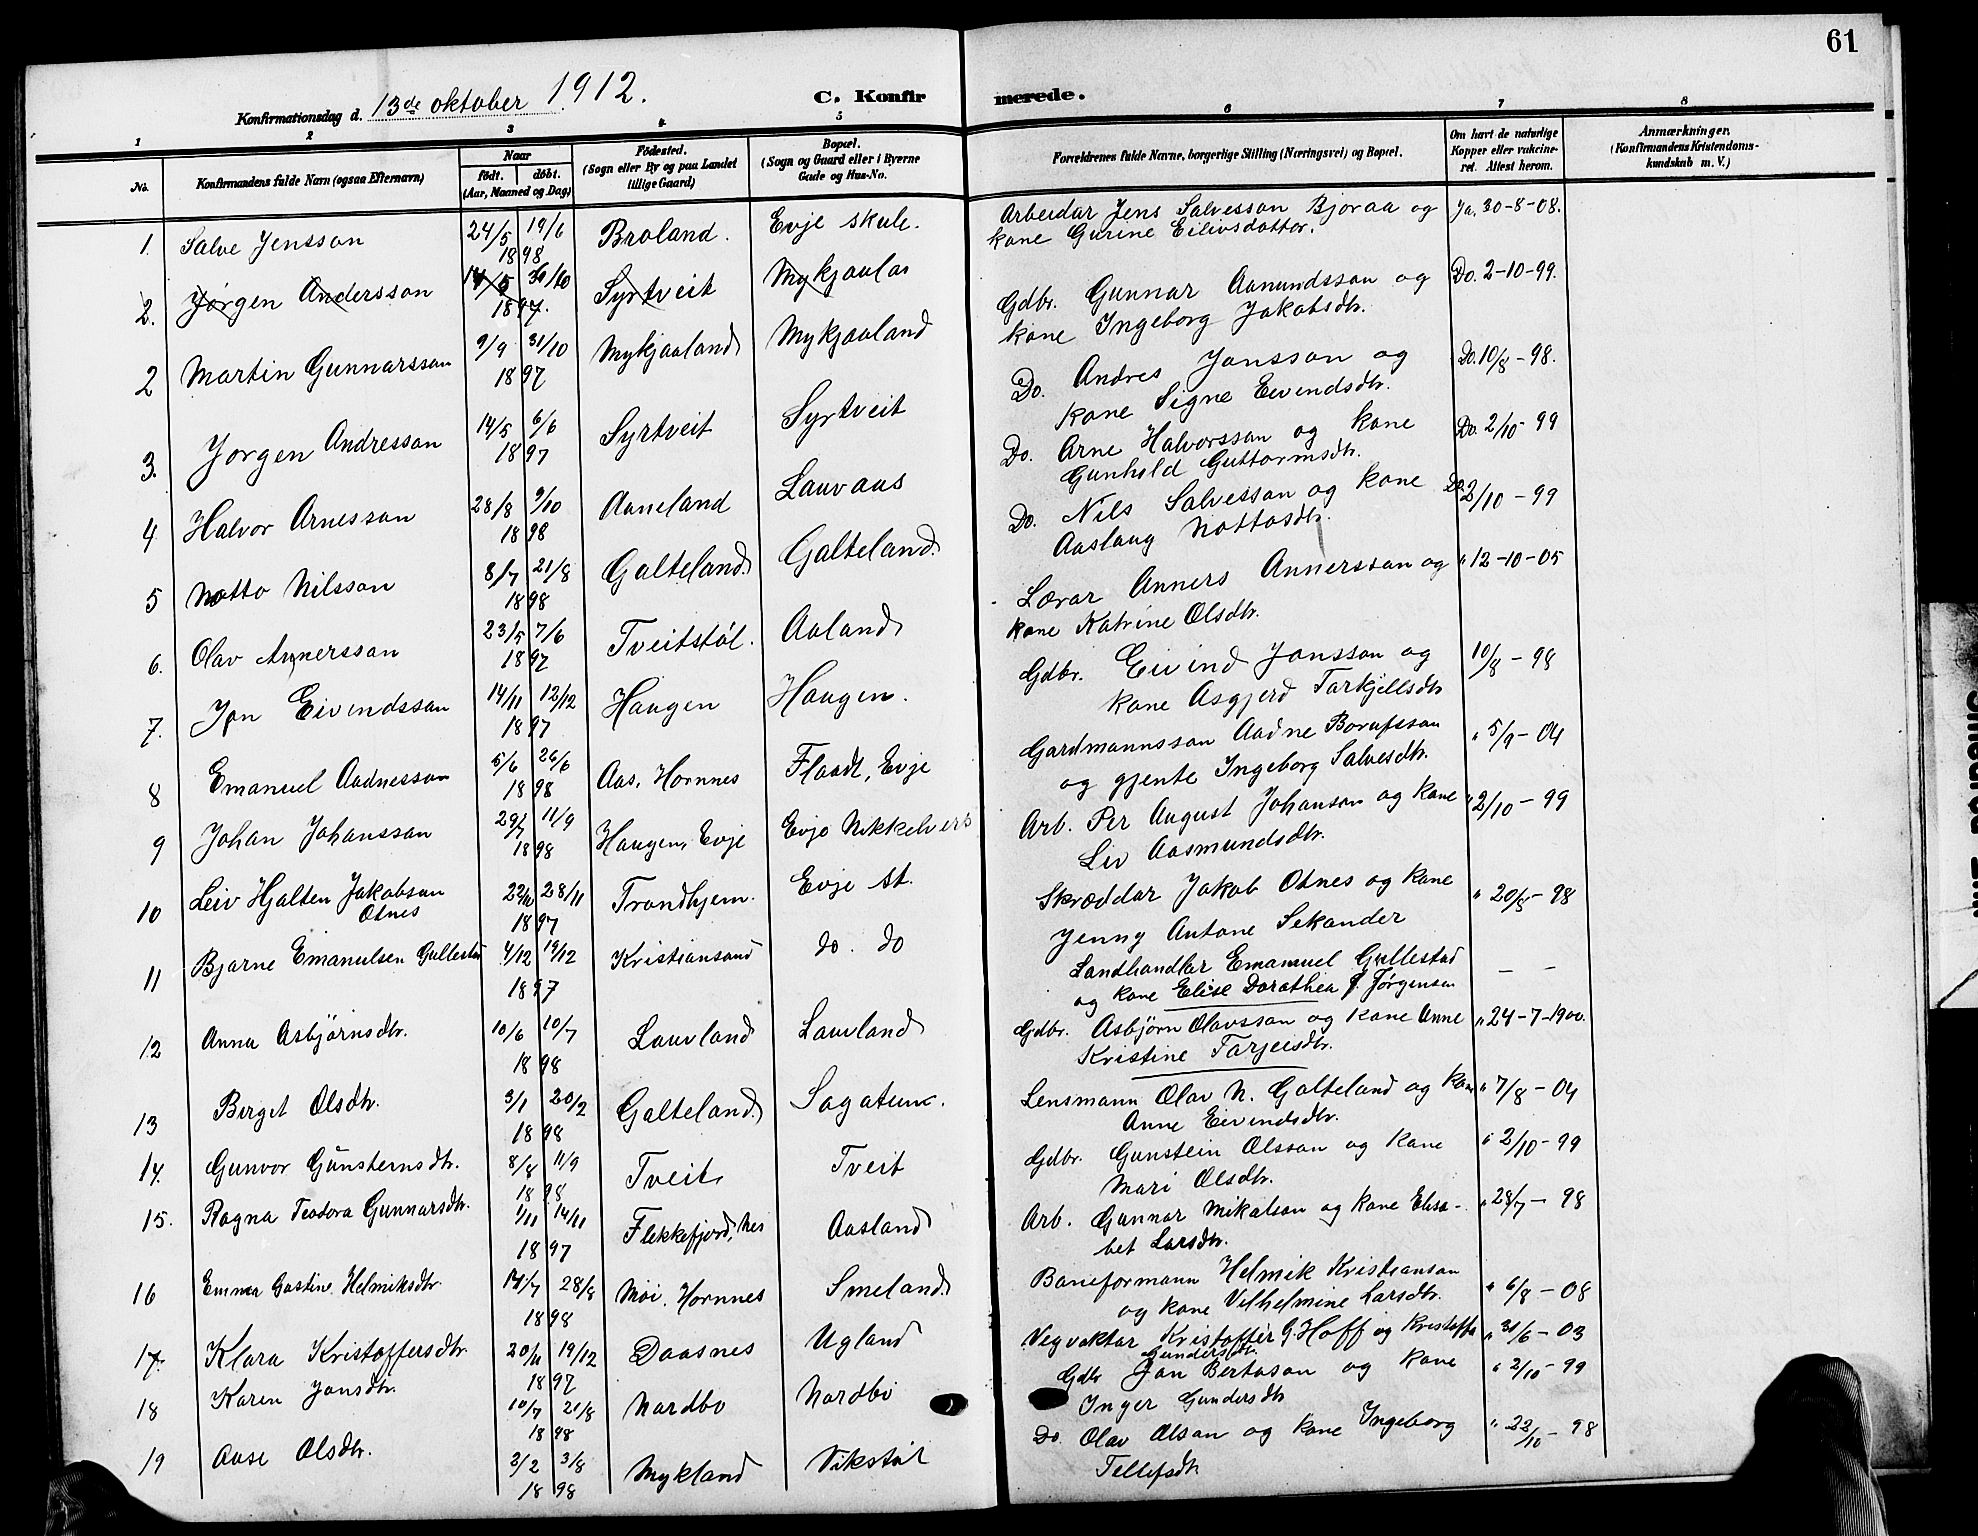 61
Konfirmationsdag d. 13de oktober 1912. C. Konfir merede.
1 2 3 4 5 6 7 8
No. Konfirmandens fulde Navn (ogsaa Efternavn) Naar födt. döbt. (Aar, Maaned og Dag) Födested. (Sogn eller By og paa Landet tillige Gaard) Bopæl. (Sogn og Gaard eller i Byerne Gade og Hus-No. Forældrenes fulde Navne, borgerlige Stilling (Næringsvei) og Bopæl. Om havt de naturlige Kopper eller vakcineret. Attest herom. Anmærkninger. (Konfirmandens Kristendomskundskab m. V.)
1. Salve Jensson 24/5 19/6 1898 Broland. Evje skule. Arbeidar Jens Salvesson Bjoraa og Ja. 30-8-08.
kone Gurine Eilivsdotter.
2. Jørgen Andersson 14/5 31/10 1897. Syrtveit Mykjaalar
2 Martin Gunnarsson 9/9 31/10 1897 Mykjaaland Mykjaaland Gdbr. Gunnar Aanundsson og Do. 2-10-99.
kone Ingeborg Jakobsdtr.
3. Jorgen Andresson 14/5 6/6 1897 Syrtveit Syrtveit Do. Andres Jonsson og Do. 10/8-98.
kone Signe Eivendsdtr.
4 Halvor Arnesson 28/8 9/10 1898 Aaneland Lauvaas Do. Arne Halvorsson og kone Do. 2/10-99
Gunhold Guttormsdtr.
5 Notto Nilsson 8/7 21/8 1898 Galteland Galteland Do. Nils Salvesson og kone Do. 2/10-99
Aaslaug Nottosdtr.
6. Olav Annersson 23/5 7/6 1897 Tveitstøl. Aaland Lærar Anners Annersson og " 12-10-05
kone Katrine Olsdtr.
7. Jon Eivendsson 14/11 12/12 1897 Haugen Haugen. Gdbr. Eivind Jonsson og 10/8-98
kone Asgjerd Tarkjellsdtr
8 Emanuel Aadnesson 5/6 26/6 1898 Aas, Hornnes Flaadt, Evje Gardmannsson Aadne Borufsson " 5/9-04
og gjente Ingeborg Salvesdtr.
9 Johan Johansson 29/7 11/9 1898 Haugen, Evje Evje Nikkelverk Arb. Per August Johanson og kone " 2/10-99
Liv Aasmundsdtr.
10 Leiv Hjalten Jakobson Otnes 22/10 28/11 1897 Trondhjem. Evje st. Skræddar Jakob Otnes og kone " 20/8-98
Jenny Antone Sekander
11 Bjarne Emanuelsen Gullestad 4/12 19/12 1897 Kristiansand do. do Landhandlar Emanuel Gullestad - -
og kone Elise Dorathea f. Jørgensen
12 Anna Asbjørnsdtr. 10/6 10/7 1898 Lauvland Lauvland Gdbr. Asbjørn Olavsson og kone Anne " 24-7-1900.
Kristine Tarjeisdtr.
13 Berget Olsdtr. 3/1 20/2 1898 Galteland Sogatun. Lensmann Olav N. Galteland og kone " 7/8-04
Anne Eivendsdtr.
14. Gunvor Gunsteinsdtr. 8/8 11/9 1898 Tveit Tveit Gdbr. Gunstein Olsson og kone " 2/10-99
Mari Olsdtr.
15. Ragna Teodora Gunnarsdtr. 1/11 14/11 1897 Flekkefjord, Nes Aasland Arb. Gunnar Mikalson og kone Elisa- " 28/7-98
bet Larsdtr.
16 Emma Gastine Helmiksdtr. 14/7 28/8 1898 Moi, Hornnes Smeland Baneformann Helmik Kristianson " 6/8-08
og kone Vilhelmine Larsdtr.
17. Klara Kristoffersdtr 20/11 19/12 1897 Daasnes Ugland Vegvaktar Kristoffer G. Hoff og Kristoffa Gundersdtr. " 31/6-03
18 Karen Jonsdtr. 10/7 21/8 1898 Nordbo Nordbø Gdbr Jon Bertoson og kone " 2/10-99
Inger Gundersdtr
19 Aase Olsdtr. 3/2 3/8 1898 Mykland Vikstøl Do Olav Olson og kone Ingeborg " 22/10-98
Tellefsdtr